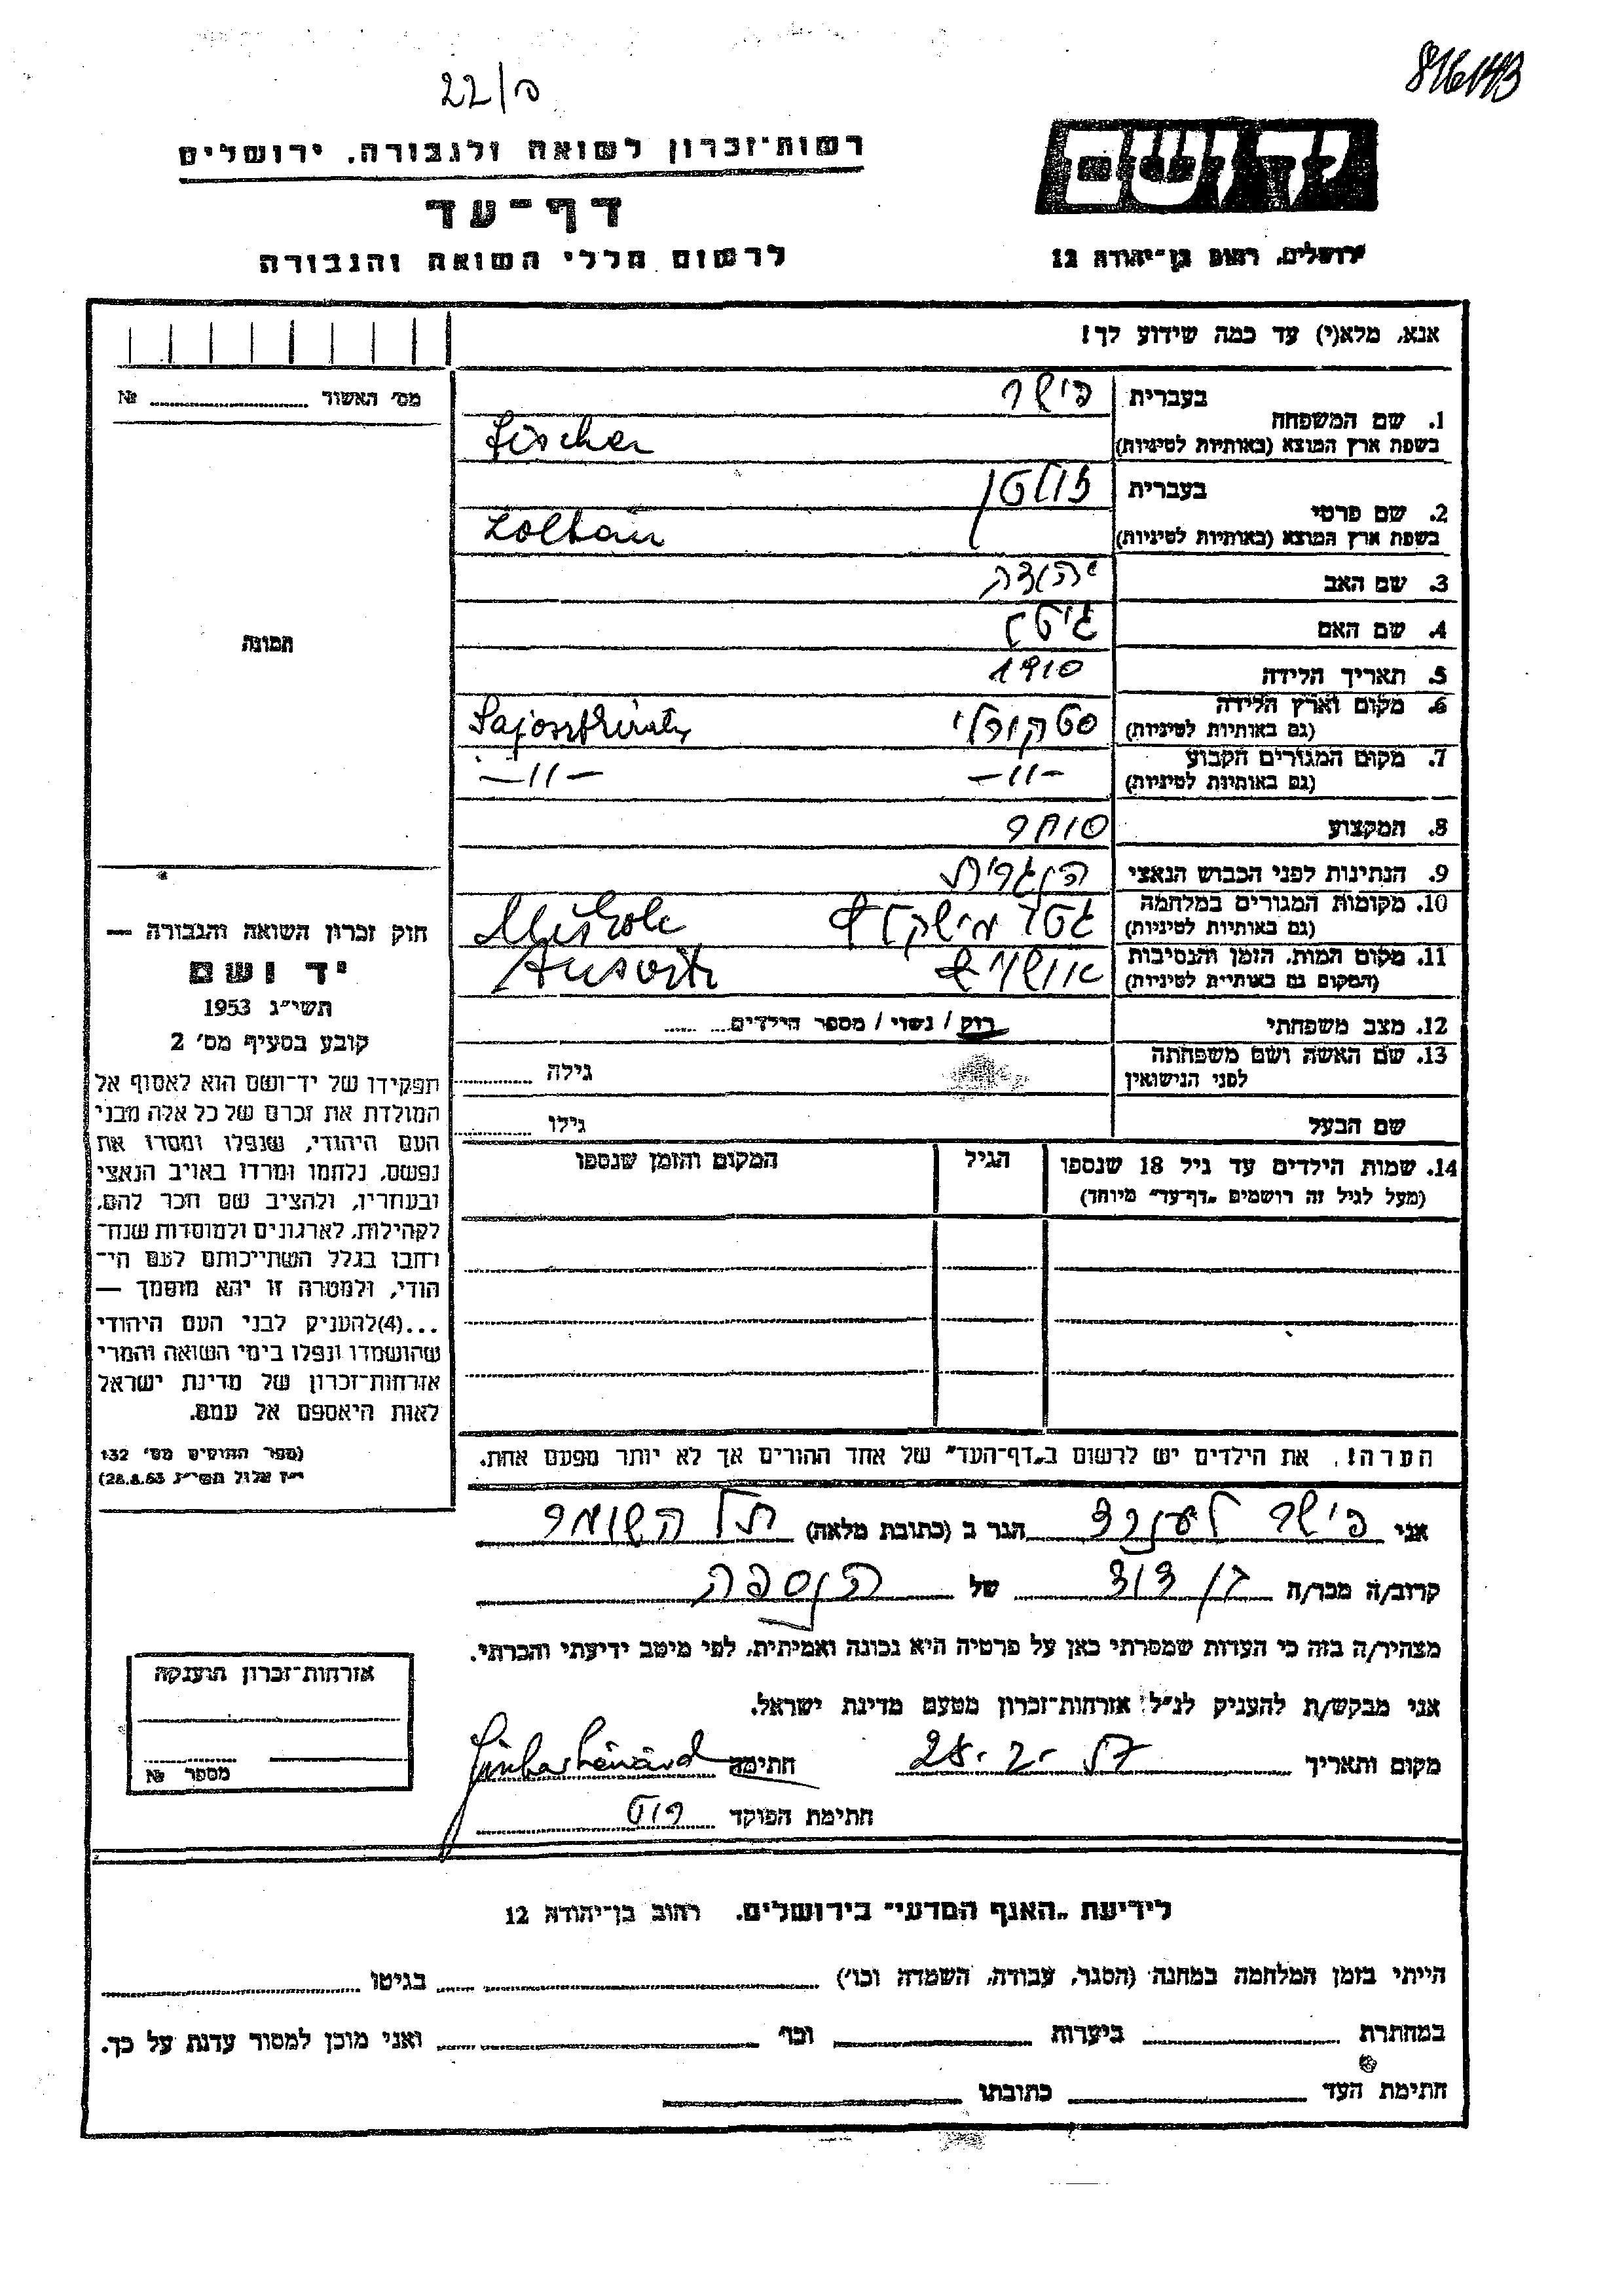 816143
22/ס
רשות־זכרון לשואה ולגבורה, ירושלים
ידושם
דף־עד
לרשום חללי השואה והגבורה
ירושלים, רחוב בן־יהודה 12
אנא, מלא(י) עד כמה שידוע לך!
מס׳ האשור № 
1. שם המשפחה
בעברית פישר
בשפת ארץ המוצא (באותיות לטיניות) Fischer
2. שם פרטי
בעברית זולטן
בשפת ארץ המוצא (באותיות לטיניות) Zoltán
3. שם האב יהודה
4. שם האם
5. תאריך הלידה 1910
6. מקום וארץ הלידה
(גם באותיות לטיניות)
7. מקום המגורים הקבוע -11- -11-
(גם באותיות לטיניות)
8. המקצוע סוחר
9. הנתינות לפני הכבוש הנאצי הונגרית
10. מקומות המגורים במלחמה גטו
(גם באותיות לטיניות)
11. מקום המות, הזמן והנסיבות
(המקום גם באותיות לטיניות)
12. מצב משפחתי רוק / נשוי / מספר הילדים
13. שם האשה ושם משפחתה
לפני הנישואין גילה
שם הבעל גילו
14. שמות הילדים עד גיל 18 שנספו
(מעל לגיל זה רושמים „דף־עד״ מיוחד)
הגיל
המקום והזמן שנספו
הערה! את הילדים יש לרשום ב„דף־העד״ של אחד ההורים אך לא יותר מפעם אחת.
תמונה
חוק זכרון השואה והגבורה —
יד ושם
תשי״ג 1953
קובע בסעיף מס׳ 2
תפקידו של יד־ושם הוא לאסוף אל
המולדת את זכרם של כל אלה מבני
העם היהודי, שנפלו ומסרו את
נפשם, נלחמו ומרדו באויב הנאצי
ובעוזריו, ולהציב שם וזכר להם,
לקהילות, לארגונים ולמוסדות שנח־
רחבו בגלל השתייכותם לעם הי־
הודי, ולמטרה זו יהא מוסמך —
...(4)להעניק לבני העם היהודי
שהושמדו ונפלו בימי השואה והמרי
אזרחות־זכרון של מדינת ישראל
לאות היאספם אל עמם.
(ספר החוקים מס׳ 132
י״ז אלול תשי״ג 28.8.53)
אני פישר הגר ב (כתובת מלאה) תל השומר
קרוב/ה מכר/ה בן דוד של הנספה
מצהיר/ה בזה כי העדות שמסרתי כאן על פרטיה היא נכונה ואמיתית, לפי מיטב ידיעתי והכרתי.
אני מבקש/ת להעניק לנ״ל אזרחות־זכרון מטעם מדינת ישראל.
מקום ותאריך 28.2.57 חתימה
חתימת הפוקד
אזרחות־זכרון הוענקה
מספר №
לידיעת „האגף המדעי״ בירושלים, רחוב בן־יהודה 12
הייתי בזמן המלחמה במחנה (הסגר, עבודה, השמדה וכו׳) בגיטו
במחתרת ביערות וכו׳ ואני מוכן למסור עדות על כך.
חתימת העד כתובתו